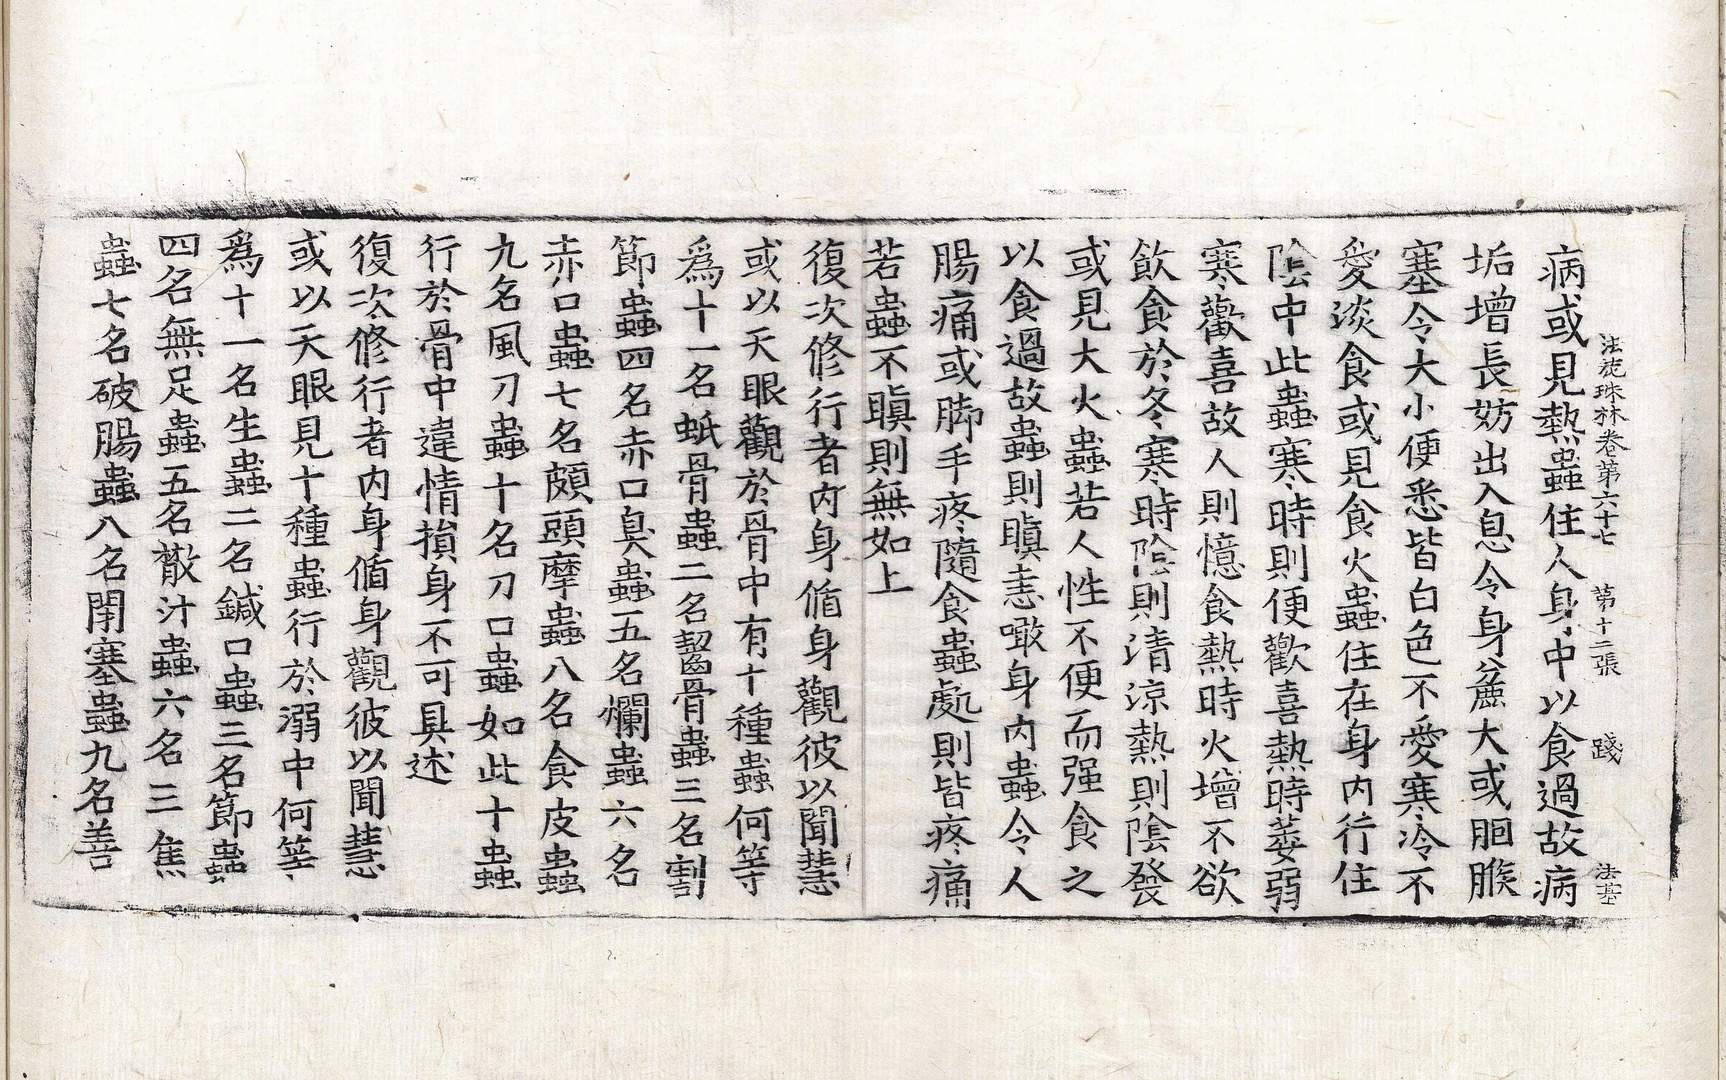 法苑珠林卷第六十七 第十二張 踐 法基
病或見熱蟲住人身中以食過故病
垢增長妨出入息令身麁大或胆䐉
塞令大小便悉皆白色不愛寒冷不
愛淡食或見食火蟲住在身內行住
陰中此蟲寒時則便歡喜熱時萎弱
寒歡喜故人則憶食熱時火增不欲
飲食於冬寒時陰則清涼熱則陰發
或見大火蟲若人性不便而强食之
以食過故蟲則瞋恚噉身內蟲令人
腸痛或脚手疼隨食蟲處則皆疼痛
若蟲不瞋則無如上
復次修行者內身循身觀彼以聞慧
或以天眼觀於骨中有十種蟲何等
爲十一名䑛骨蟲二名齧骨蟲三名割
節蟲四名赤口臭蟲五名爛蟲六名
赤口蟲七名頗頭摩蟲八名食皮蟲
九名風刀蟲十名刀口蟲如此十蟲
行於骨中違情損身不可具述
復次修行者內身循身觀彼以聞慧
或以天眼見十種蟲行於溺中何等
爲十一名生蟲二名鍼口蟲三名節蟲
四名無足蟲五名散汁蟲六名三焦
蟲七名破腸蟲八名閉塞蟲九名善